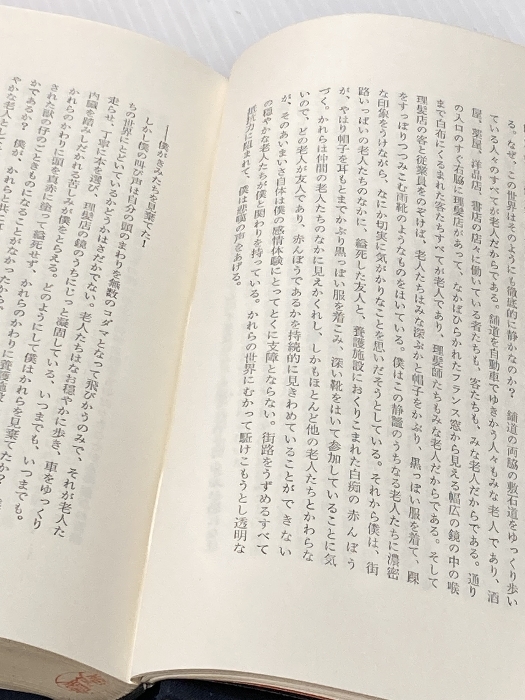 る。なぜ、この世界はそのようにも徹底的に静かなのか? 舗道の両脇の敷石道をゆっくり歩い
ている人々のすべてが老人だからである。舗道を自動車でゆきかう人々もみな老人であり、酒
屋、薬屋、洋品店、書店の店々に働いている者たちも、客たちも、みな老人だからである。通り
の入口のすぐ右脇に理髪店があって、なかばひらかれたフランス窓から見える幅広の鏡の中の喉
まで白布にくるまれた客たちすべてが老人であり、理髪師たちもみな老人だからである。そして
理髪店の客と従業員をのぞけば、老人たちはみな深ぶかと帽子をかぶり、黒っぽい服を着て、踝
をすっぽりつつみこむ雨靴のようなものをはいている。僕はこの静謐のうちなる老人たちに濃密
な印象をうけながら、なにか切実に気がかりなことを思いだそうとしている。それから僕は、街
路いっぱいの老人たちのなかに、縊死した友人と、養護施設におくりこまれた白痴の赤んぼう
が、やはり帽子を耳もとまでかぶり黒っぽい服を着こみ、深い靴をはいて参加していることに気
づく。かれらは仲間の老人たちのなかに見えかくれし、しかもほとんど他の老人たちとかわらな
いので、どの老人が友人であり、赤んぼうであるかを持続的に見きわめていることができない
が、そのあいまいさ自体は僕の感情体験にとってとくに支障とならない。街路をうずめるすべて
の穏やかな老人たちが僕と関わりを持っている。かれらの世界にむかって駈けこもうとし透明な
抵抗力に阻まれて、僕は悲嘆の声をあげる。
──僕がきみたちを見棄てた!
しかし僕の叫び声は自分の頭のまわりを無数のコダマとなって飛びかうのみで、それが老人た
ちの世界にとどいているかどうかはさだかでない。老人たちはなお穏やかに歩き、車をゆっくり
走らせ、丁寧に本を選び、理髪店の鏡のうちにじっと凝固している、いつまでも、いつまでも。
内臓を踏みしだかれる苦しみが僕をとらえる。どのようにして僕はかれらを見棄てたか?
かれらのかわりに頭を真赤に塗って縊死せず、かれらのかわりに養護施設
された獣の仔のごときものになることがなかったから、
かであるか? 僕が、かれらと共に
やかな老人として